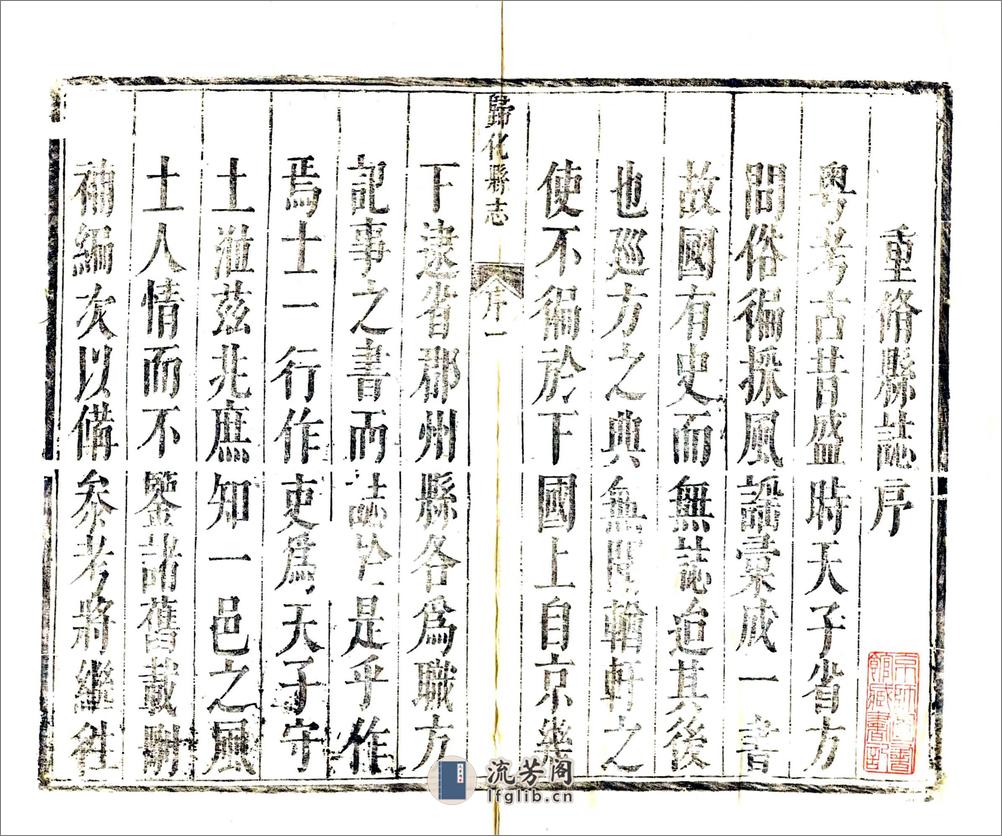 重脩縣誌序
粤考古昔盛時天子省方
問俗徧採風謡彙成一書
故國有史而無誌迨其後
也廵方之典無聞輶軒之
使不徧於下國上自京畿
歸化縣志
序一
下逮省郡州縣各爲職方
記事之書而誌於是乎作
焉士一行作吏爲天子守
土涖茲兆庶知一邑之風
土人情而不鑒諸舊載耐
補編次以備叅考將繼往
京師圖書館藏書記
流芳阁
lfglib.cn